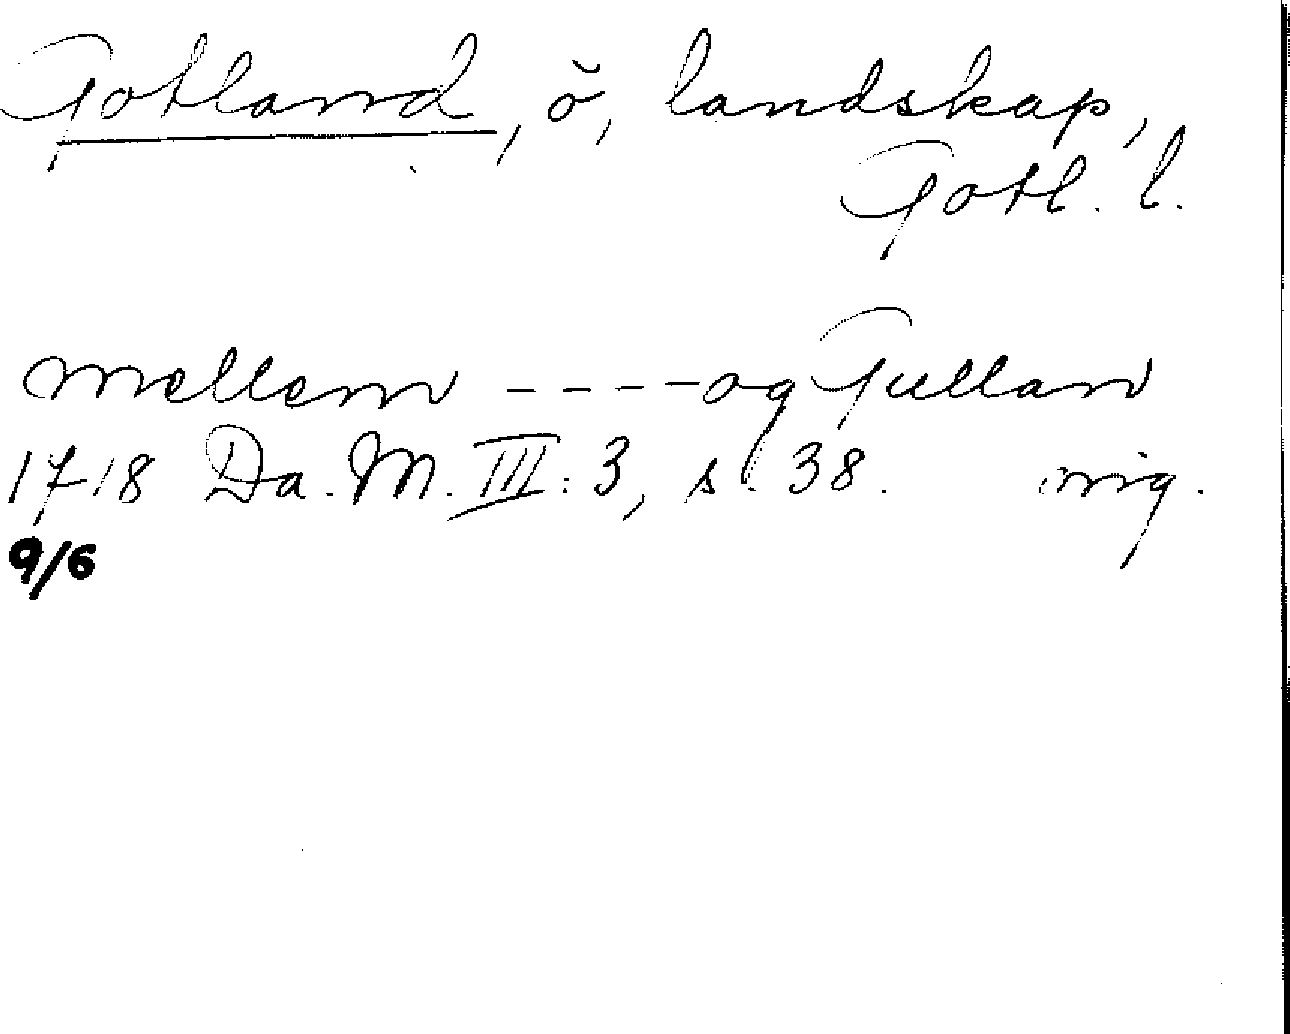 Gotland, ö, landskap,
Gotl. l.
mellem ---- og Gullan
1718 Da. M. III: 3, s. 38. orig.
9/6